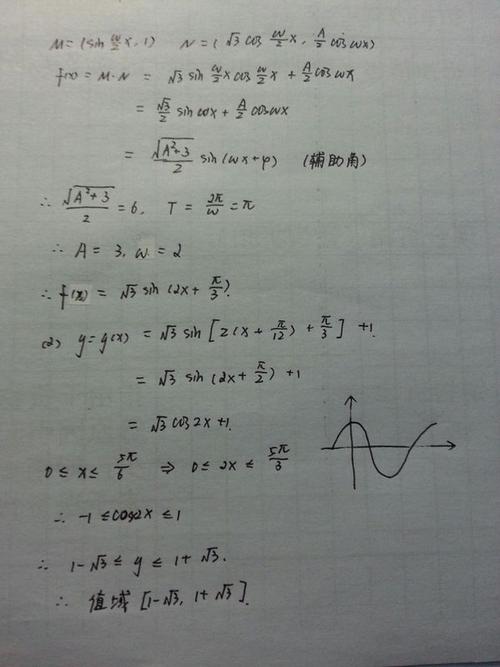 M=(sin ω/2 x, 1) N=(√3 cos ω/2 x, A/2 cos ωx)
f(x) = M·N = √3 sin ω/2 x cos ω/2 x + A/2 cos ωx
= √3/2 sin ωx + A/2 cos ωx
= √(A²+3)/2 sin(ωx+φ) (辅助角)
∴ √(A²+3)/2 = 6, T = 2π/ω = π
∴ A = 3, ω = 2
∴ f(x) = √3 sin(2x + π/3).
(2) y = g(x) = √3 sin[2(x + π/12) + π/3] + 1.
= √3 sin(2x + π/2) + 1
= √3 cos 2x + 1.
0 ≤ x ≤ 5π/6 ⇒ 0 ≤ 2x ≤ 5π/3
∴ -1 ≤ cos2x ≤ 1
∴ 1-√3 ≤ y ≤ 1+√3.
∴ 值域 [1-√3, 1+√3].